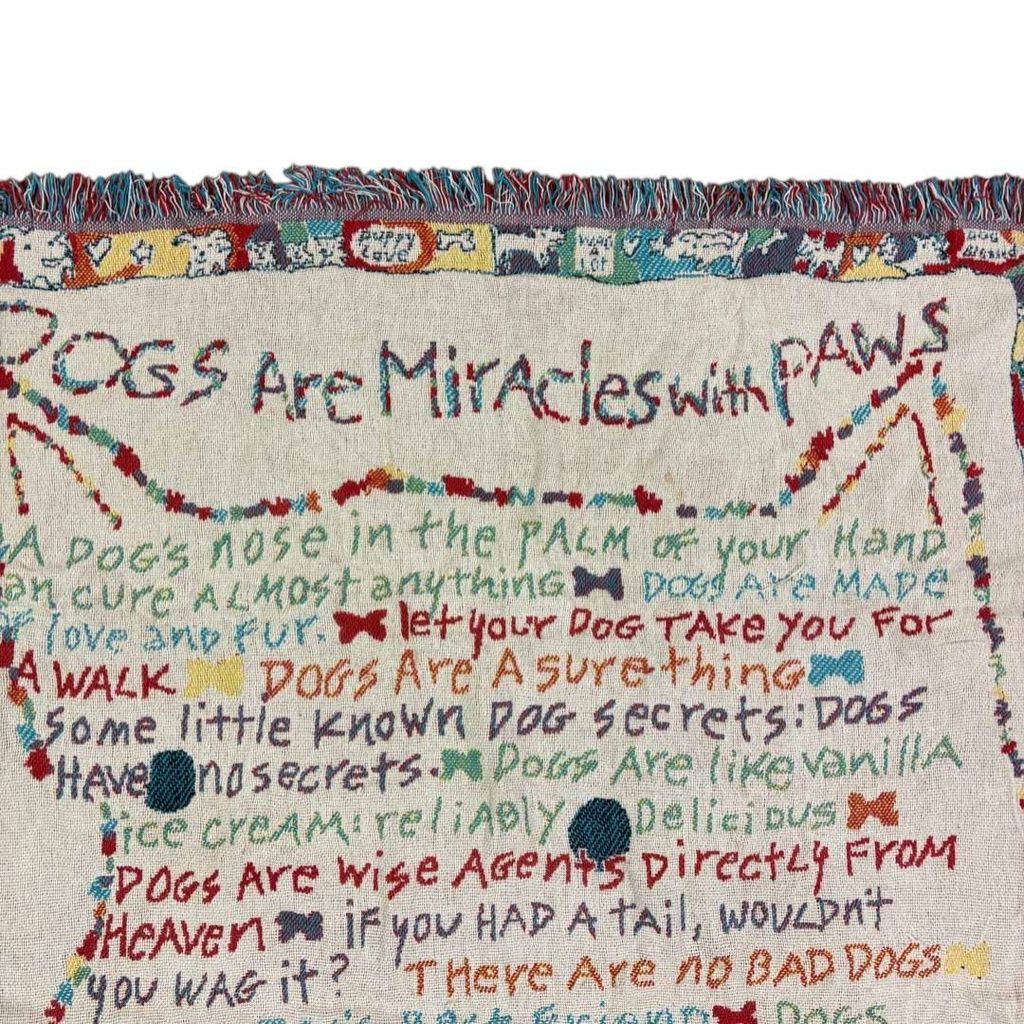 PUPPY LOVE
DOGS Are MirAcles with PAWS
A DOG'S nose in the PALM of your HanD
an cure ALMost anything DOGS Are MADE
F love anD FUR. let your DOG TAKe you For
A WALK DOGS Are A sure thing
some little known DOG secrets: DOGS
HAVE no secrets. DOGS Are like vanillA
ice creAM: reliAbly Delicious
DOGS Are wise Agents Directly From
HeAven iF you HAD A tAil, woulDn't
you WAG it? THere Are no BAD DOGS
DOGS